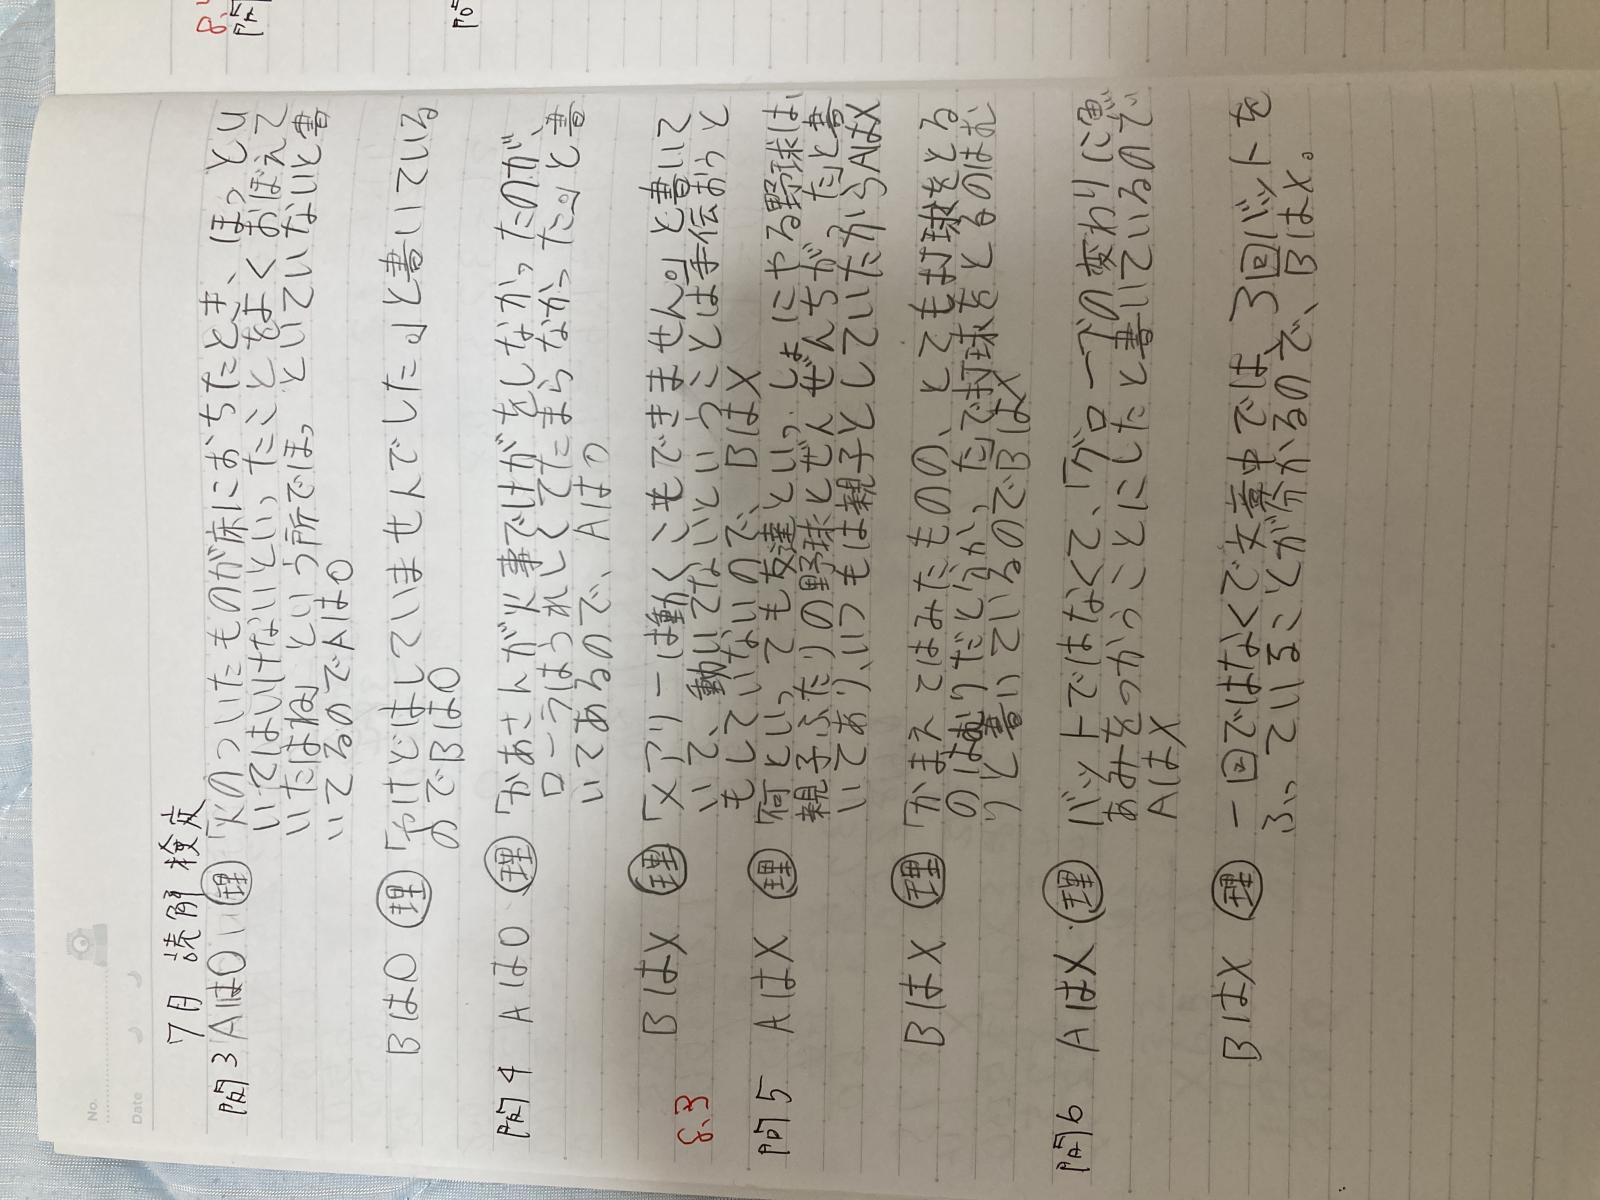 No.
Date
7月 読解検定
問3 Aは○ 理 「火のついたものが床におちたとき、ほっとい
いてはいけないといったことをよくおぼえて
いたはね」という所でほっといていないと書
いてるのでAは○
Bは○ 理 「やけどはしていませんでした」と書いている
のでBは○
問4 Aは○ 理 「かあさんが火事でけがをしなかったのが、
ローラはうれしくてたまらなかった。」と書
いてあるので、Aは○
Bは× 理 「メアリーは動くこもできません」と書いて
いて、動いてないということは手伝おうと
もしていないので、Bは×
8.3
問5 Aは× 理 「何といっても友達といっしょにやる野球は、
親子ふたりの野球とぜんぜんちがった」と書
いてあり、いつもは親子としていたからAは×
Bは× 理 「かまえてはみたものの、とても打球をとる
のはむりだとわかった」で打球をとるのはむ
りと書いているのでBは×
問6 Aは× 理 バットではなくて、「グローブの変わりに魚
あみをつかうことにしたと書いているので
Aは×
Bは× 理 一回ではなくて文章中では3回バットを
ふっていることが分かるので、Bは×。